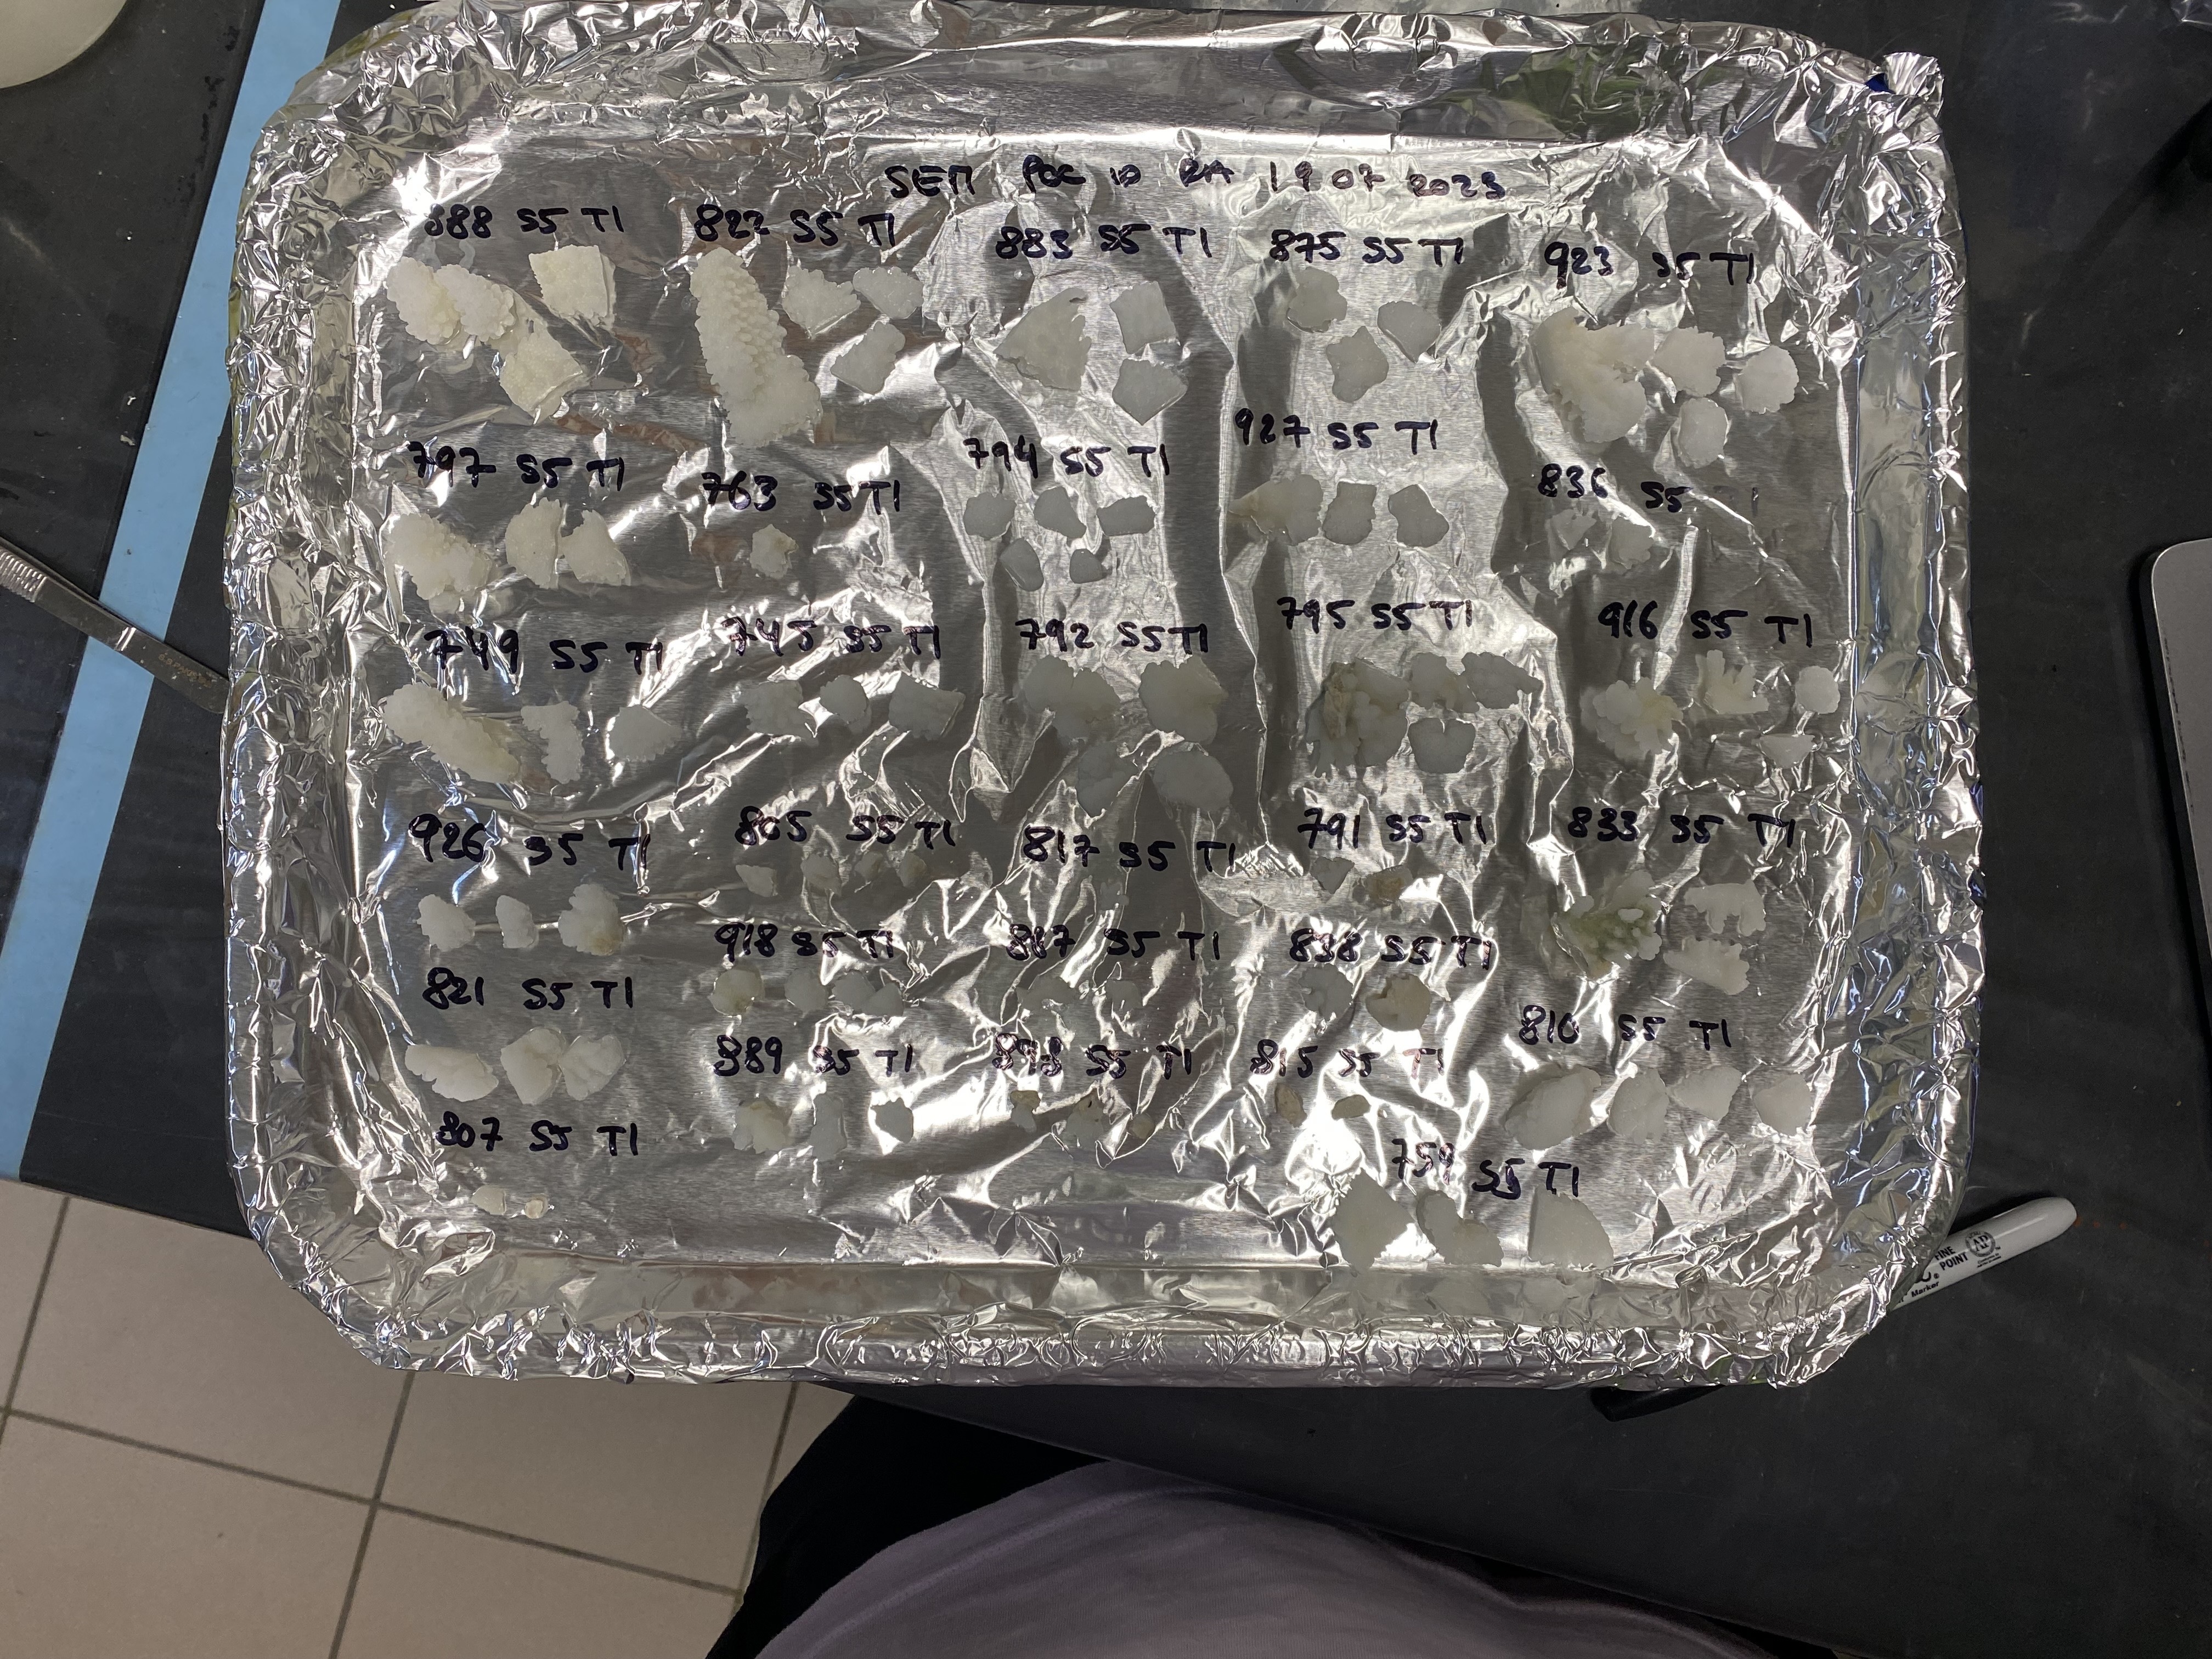 SEM POC 10 RA 19 07 2023
888 S5 T1
822 S5 T1
883 S5 T1
875 S5 T1
923 S5 T1
797 S5 T1
763 S5 T1
794 S5 T1
927 S5 T1
836 S5
749 S5 T1
745 S5 T1
792 S5 T1
795 S5 T1
916 S5 T1
926 S5 T1
805 S5 T1
817 S5 T1
791 S5 T1
833 S5 T1
821 S5 T1
918 S5 T1
S5 T1
838 S5 T1
810 S5 T1
807 S5 T1
889 S5 T1
S5 T1
815 S5 T1
759 S5 T1
FINE
POINT
AP
Marker